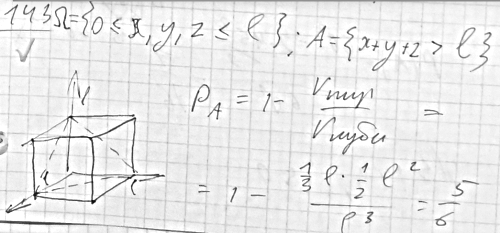 143 Ω={0 ≤ x, y, z ≤ l}; A={x+y+z > l}
P_A = 1 - V_пир / V_куба =
= 1 - (1/3 l · 1/2 l²) / l³ = 5/6
l
l